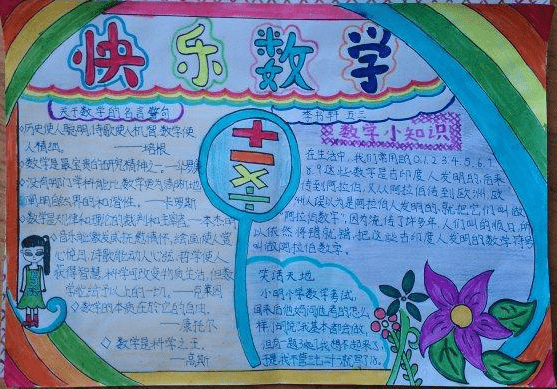 快乐数学
关于数学的名言警句
李书轩 五三
◇历史使人聪明,诗歌使人机智,数学使
人精细。 ——培根
◇数学是最宝贵的研究精神之一。——华罗庚
◇没有哪门学科能比数学更为清晰地
阐明自然界的和谐性。 ——卡罗斯
◇数学是规律和理论的裁判和主宰者。——本杰明
◇音乐能激发或抚慰情怀,绘画使人赏
心悦目,诗歌能动人心弦,哲学使人
获得智慧,科学可改变物质生活,但数
学能给予以上的一切。 ——克莱因
◇数学的本质在于它的自由。
——康托尔
◇数学是科学之王。
——高斯
+ − × ÷
数学小知识
在生活中,我们常用的0.1.2.3.4.5.6.7
8.9这些数字是古印度人发明的,后来
传到阿拉伯,又从阿拉伯传到欧洲,欧
洲人误以为是阿拉伯人发明的,就把它们叫做
"阿拉伯数字",因为流传了许多年,人们叫的顺口,所
以依然将错就错,把这些古印度人发明的数字符号
叫做阿拉伯数字。
笑话天地
小明小学数学考试,
回来后他妈问他考的怎么
样,小明说:我基本都会做,
但有一题3乘7,我想不起来了,
于是我不管三七二十一就写了18。